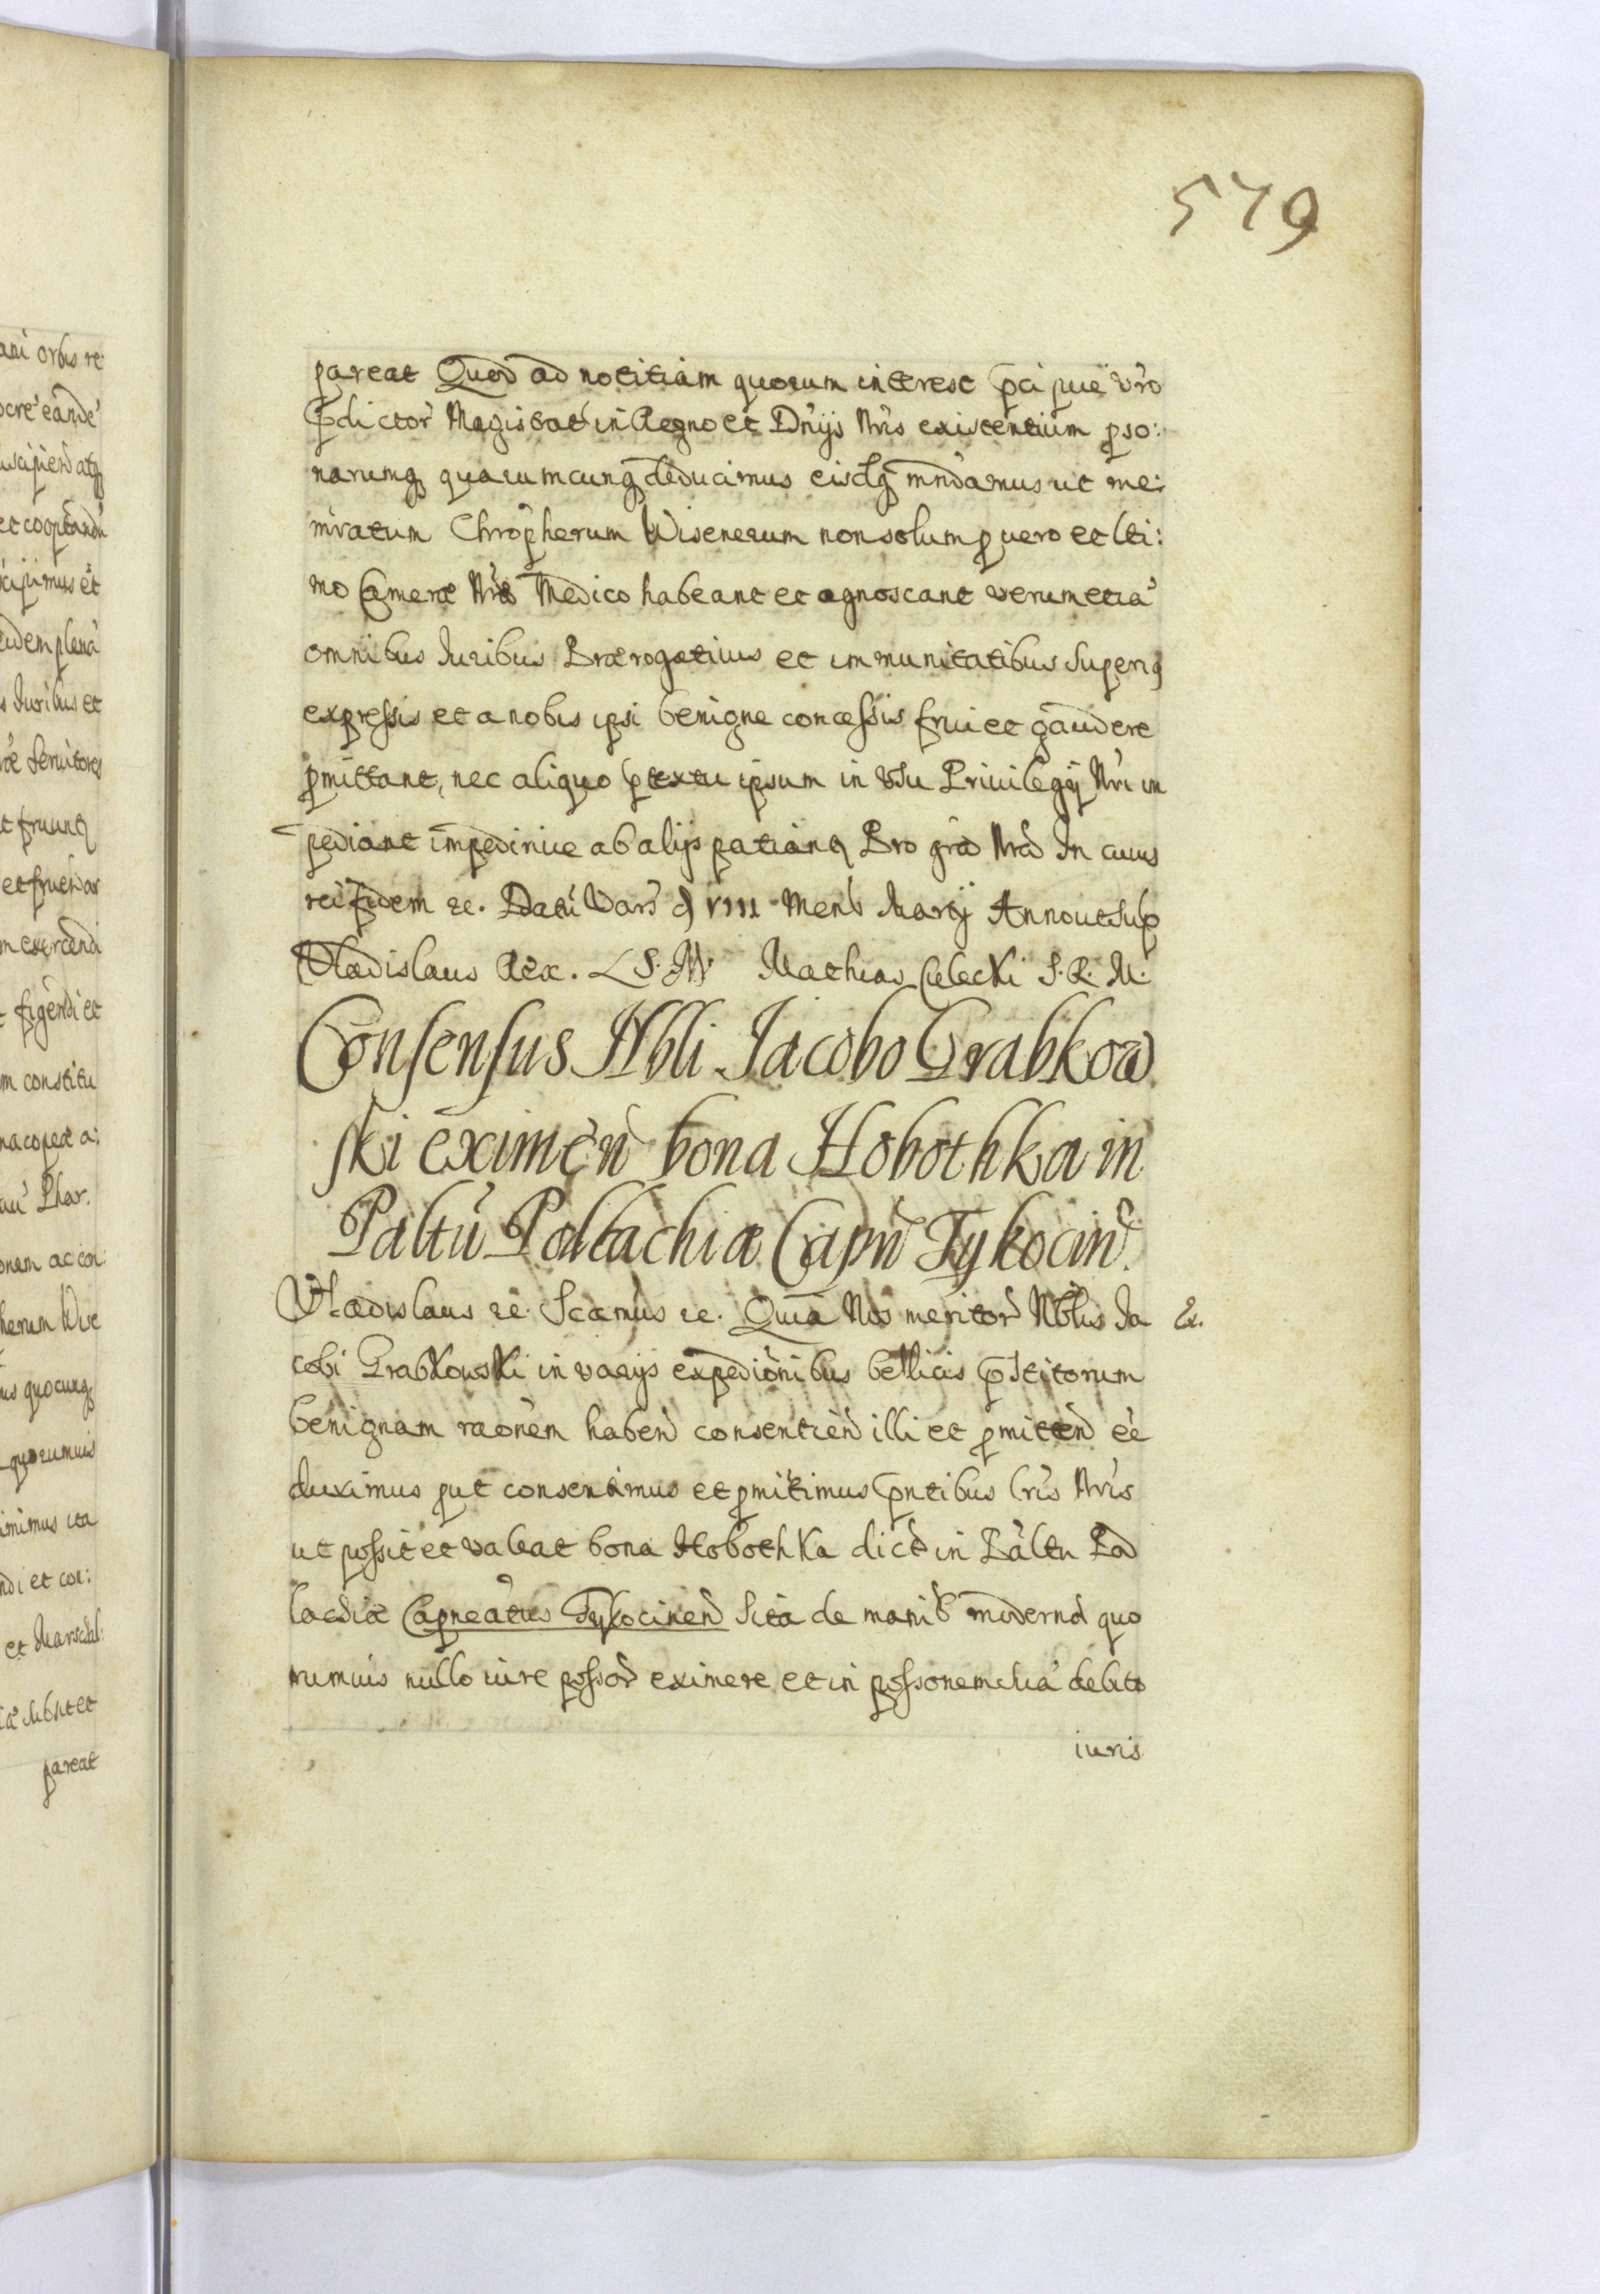 579
pareat Quod ad notitiam quorum interest p̄cipue v̓ro
p̄dictor̓ Magistrat̓ in Regno et Dn̓ijs Nr̓is existentium pso:
narumq quarumcunq deducimus eisdq mn̄damus ut me:
mr̓atum Chro̓pherum Wisenerum non solum p vero et lti:
mo Cameræ Nr̓æ Medico habeant et agnoscant verumetia̓
omnibus Iuribus Prærogatiuis et immunitatibus superiq
expressis et a nobis ipsi benigne concessis frui et gaudere
pmittant, nec aliquo ptextu ipsum in vsu Priuilegij Nr̓i im
pediant impediriue ab alijs patianq Pro gr̄a Nr̄a In cuius
rei fidem &c. Datu̓ Vars̓ d VIII Mens̓ Martij Anno ut sup
Vladislaus Rex. L S. M. Mathias Cielecki S. R. M.
Consensus Nbli Jacobo Grabkow
ski eximen̓ bona Hobothka in
Paltu̓ Podlachiæ Capn̓ Tykocin̓.
Vladislaus &c. Scamus &c. Quia Nos meritor̓ Nblis Ia
cobi Grabkowski in varijs expedio̓nibus bellicis p̄stitorum
benignam rao̓nem haben̓ consentien̓ illi et pmitten̓ ee̓
duximus put consentimus et pmitimus p̄ntibus lr̓is Nr̓is
ut possit et valeat bona Hobothka dict̓ in Pal̓tu Pod
lachiæ Capneatus Tykocinen̓ sita de manib̓ moderno̓ quo
rumuis nullo iure possor̓ eximere et in possonem sua̓ debito
iuris
Ex.
ani orbis re:
ocre̓ eande̓
uscipien̓ atq
et cooptandu̓
scipimus et
eidem plena̓
s Iuribus et
ræ Seruitores
t fruunq
et fruen̓ ac
m exercendi
t figendi et
m constitu
macopeæ a:
au̓ Phar.
onem ac con
herum Wise
us quocunq
quorumuis
imimus ita
ndi et cor:
et Marschal:
pareat